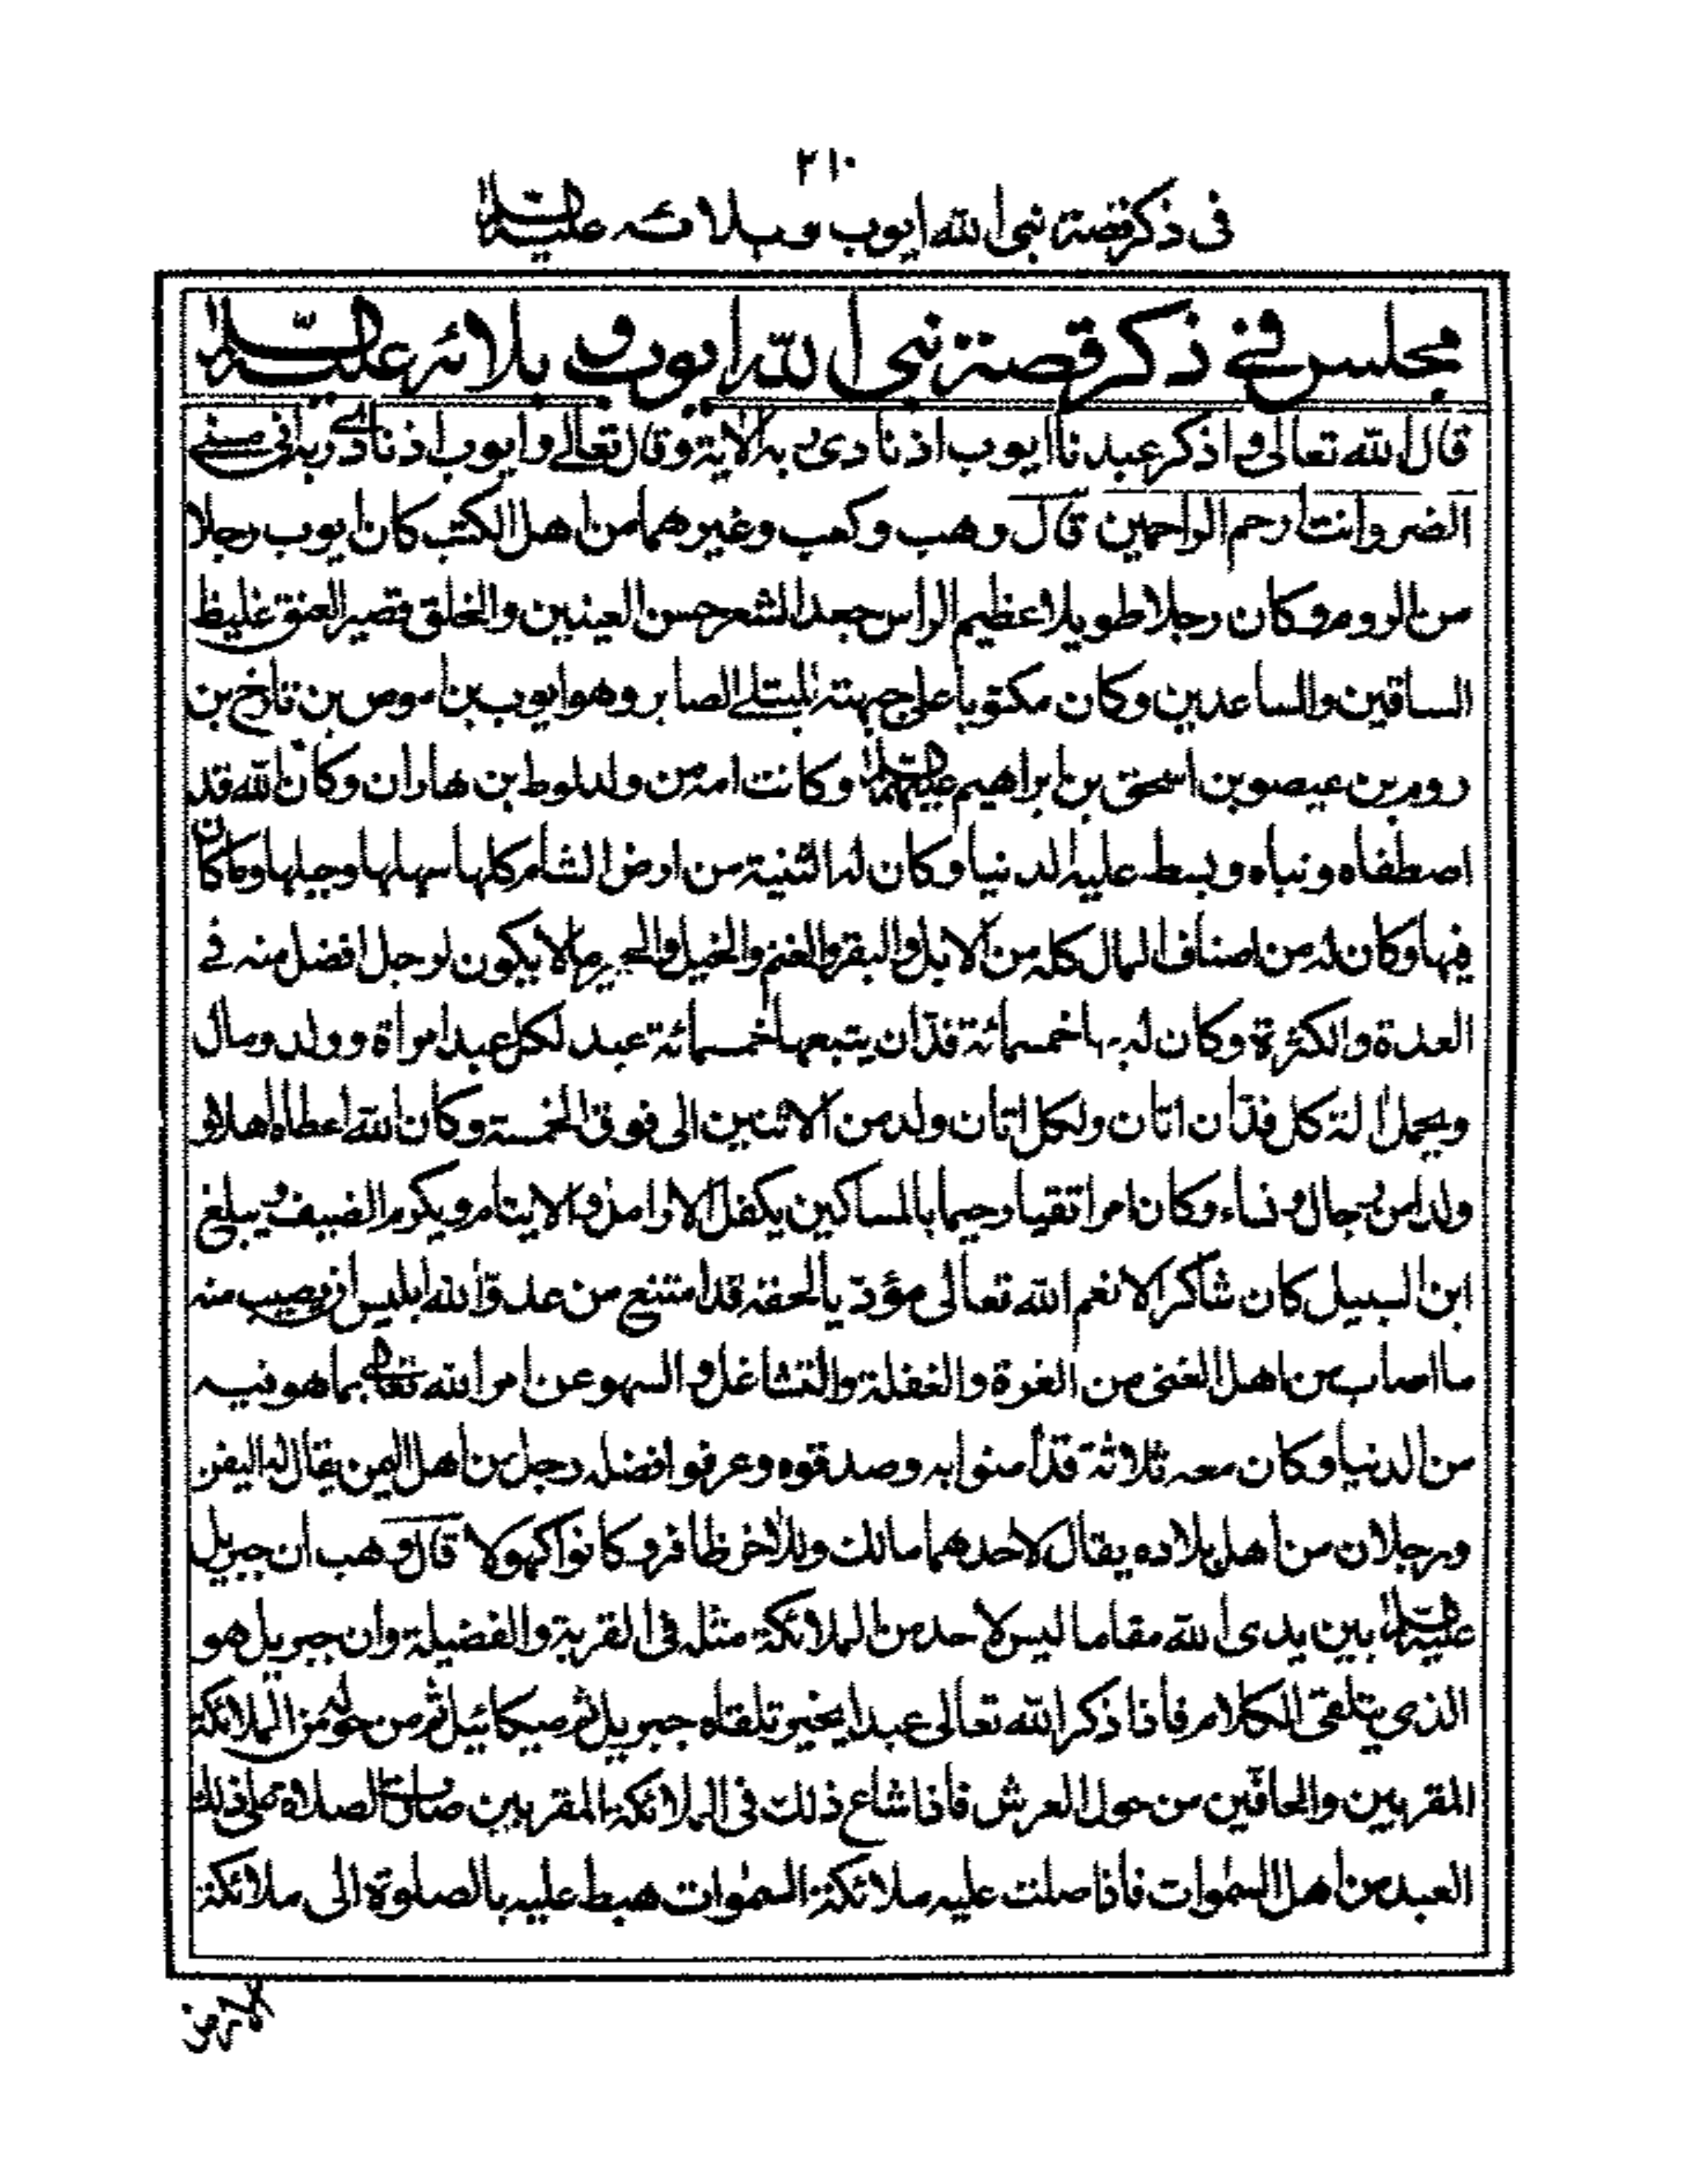 ٢١٠
فى ذكر قصة نبى الله ايوب وبلائه عليه السلام
مجلس فى ذكر قصة نبى الله ايوب و بلائه عليه السلام
قال الله تعالى واذكر عبدنا ايوب اذ نادى ربه الاية وقال تعالى وايوب اذ نادى ربه انى مسنى
الضر وانت ارحم الراحمين قال وهب وكعب وغيرهما من اهل الكتب كان ايوب رجلا
من الروم وكان رجلا طويلا عظيم الراس جعد الشعر حسن العينين والخلق قصير العنق غليظ
الساقين والساعدين وكان مكتوبا على جبهته المبتلى الصابر وهو ايوب بن اموص بن تارخ بن
روم بن عيصو بن اسحق بن ابراهيم عليهم السلام وكانت امه من ولد لوط بن هاران وكان الله قد
اصطفاه ونباه وبسط عليه الدنيا وكان له الثنية من ارض الشام كلها سهلها وجبلها وما كان
فيها وكان له من اصناف المال كله من الابل والبقر والغنم والخيل والحمير ما لا يكون لرجل افضل منه فى
العدة والكثرة وكان له بها خمسمائة فدان يتبعها خمسمائة عبد لكل عبد امراة وولد ومال
ويحمل الة كل فدان اتان ولكل اتان ولد من الاثنين الى فوق الخمسة وكان الله اعطاه اهلا و
ولدا من رجال ونساء وكان امرا تقيا رحيما بالمساكين يكفل الارامل والايتام ويكرم الضيف ويبلغ
ابن السبيل كان شاكرا لانعم الله تعالى مؤديا لحقه قد امتنع من عدو الله ابليس ان يصيب منه
ما اصاب من اهل الغنى من الغرة والغفلة والتشاغل والسهو عن امر الله تعالى بما هو فيه
من الدنيا وكان معه ثلاثة قد امنوا به وصدقوه وعرفوا فضله رجل من اهل اليمن يقال له اليفن
ورجلان من اهل بلاده يقال لاحدهما مالك وللاخر ظافر وكانوا كهولا قال وهب ان جبريل
عليه السلام بين يدى الله مقاما ليس لاحد من الملائكة مثله فى القربة والفضيلة وان جبريل هو
الذى يتلقى الكلام فاذا ذكر الله تعالى عبدا بخير تلقاه جبريل ثم ميكائيل ثم من حوله من الملائكة
المقربين والحافين من حول العرش فاذا شاع ذلك فى الملائكة المقربين صارت الصلاة على ذلك
العبد من اهل السموات فاذا صلت عليه ملائكة السموات هبط عليه بالصلوة الى ملائكة
الارض